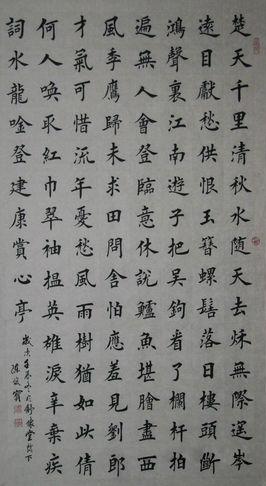 楚天千里清秋水随天去秌無際遥岑
遠目獻愁供恨玉簪螺髻落日樓頭斷
鴻聲裏江南遊子把吳鉤看了欄杆拍
遍無人會登臨意休說鱸魚堪膾盡西
風季鷹歸未求田問舍怕應羞見劉郎
才氣可惜流年憂愁風雨樹猶如此倩
何人喚取紅巾翠袖揾英雄淚辛棄疾
詞水龍唫登建康賞心亭